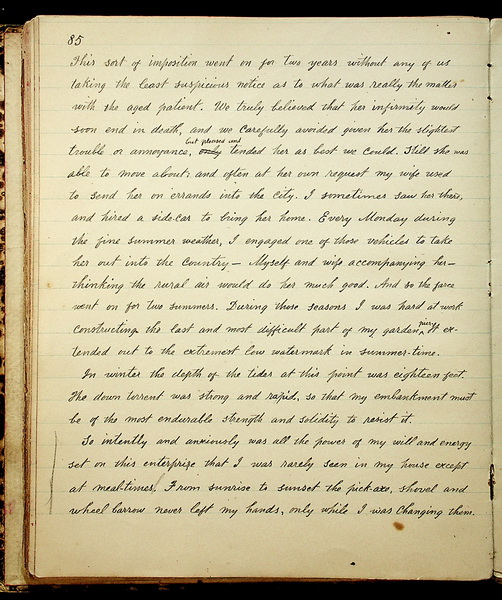 85
This sort of imposition went on for two years without any of us
taking the least suspicious notice as to what was really the matter
with the aged patient. We truly believed that her infirmity would
soon end in death, and we carefully avoided given her the slightest
but pleased and
trouble or annoyance, only tended her as best we could. Still she was
able to move about: and often at her own request my wife used
to send her on errands into the city. I sometimes saw her there,
and hired a side-car to bring her home. Every Monday during
the fine summer weather, I engaged one of those vehicles to take
her out into the Country — Myself and wife accompanying her —
thinking the rural air would do her much good. And so the farce
went on for two summers. During those seasons I was hard at work
constructing the last and most difficult part of my garden, It ex-
tended out to the extremest low watermark in summer-time.
In winter the depth of the tides at this point was eighteen feet.
The down torrent was strong and rapid, so that my embankment must
be of the most endurable strength and solidity to resist it.
So intently and anxiously was all the power of my will and energy
set on this enterprise that I was rarely seen in my house except
at meal-times. From sunrise to sunset the pick-axe, shovel and
wheel barrow never left my hands, only while I was Changing them.